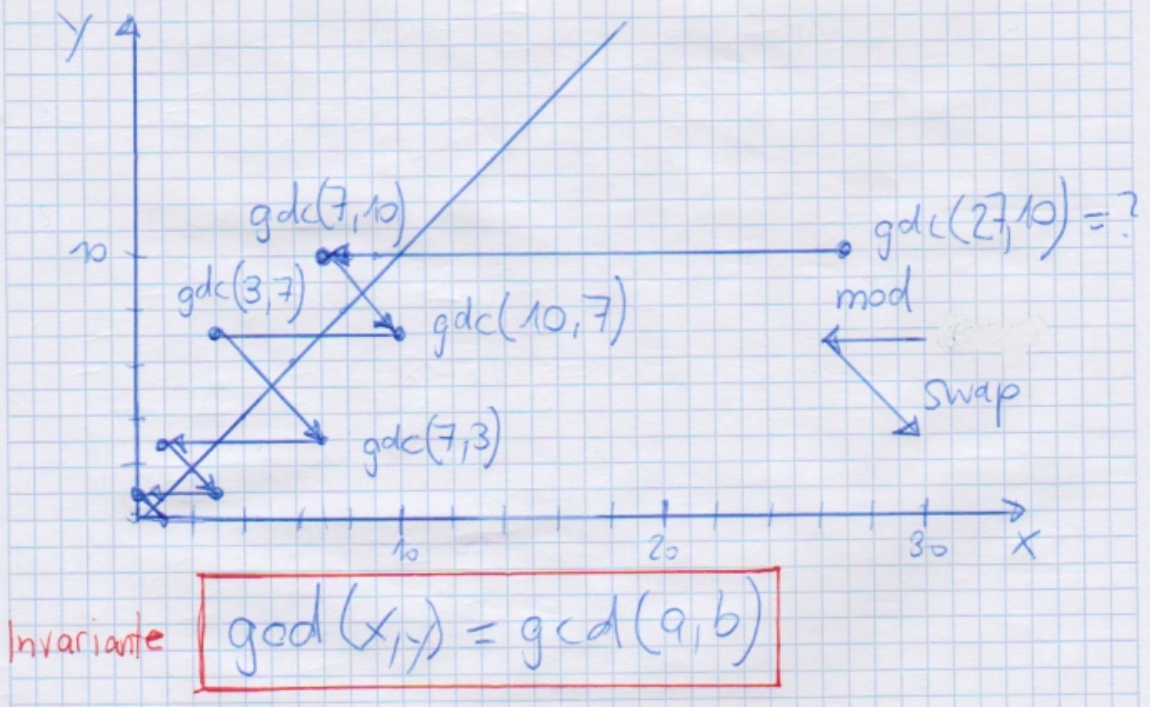 y
gdc(7,10)
gdc(27,10) = ?
10
gdc(3,7)
mod
gdc(10,7)
swap
gdc(7,3)
10
20
30
x
Invariante
gcd(x,y) = gcd(a,b)